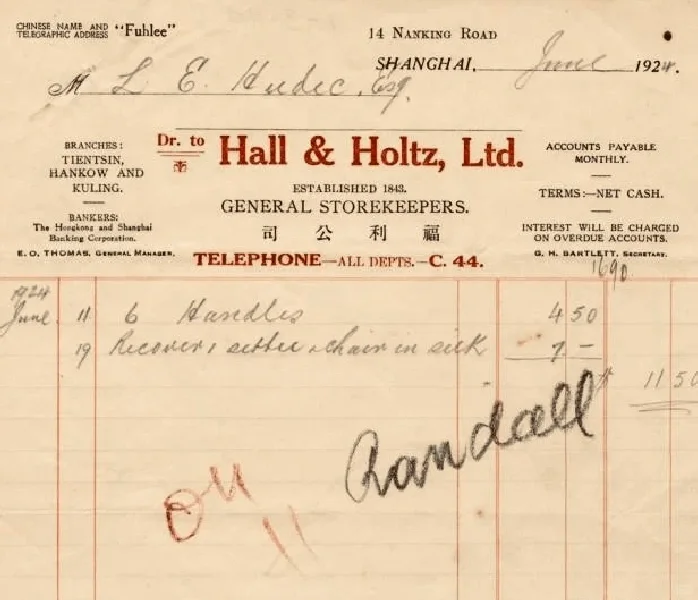 CHINESE NAME AND TELEGRAPHIC ADDRESS "Fuhlee"
14 NANKING ROAD
SHANGHAI, June 1924.
M L. E. Hudec, Esq.
Dr. to Hall & Holtz, Ltd.
ESTABLISHED 1843.
GENERAL STOREKEEPERS.
司 公 利 福
TELEPHONE—ALL DEPTS.—C. 44.
BRANCHES:
TIENTSIN,
HANKOW AND
KULING.
BANKERS:
The Hongkong and Shanghai
Banking Corporation.
E. O. THOMAS, GENERAL MANAGER.
ACCOUNTS PAYABLE
MONTHLY.
TERMS:—NET CASH.
INTEREST WILL BE CHARGED
ON OVERDUE ACCOUNTS.
G. H. BARTLETT, SECRETARY.
1690
1924
June 11 6 Handles 4 50
19 Recover settee chair in silk 7 -
$ 11 50
Randall